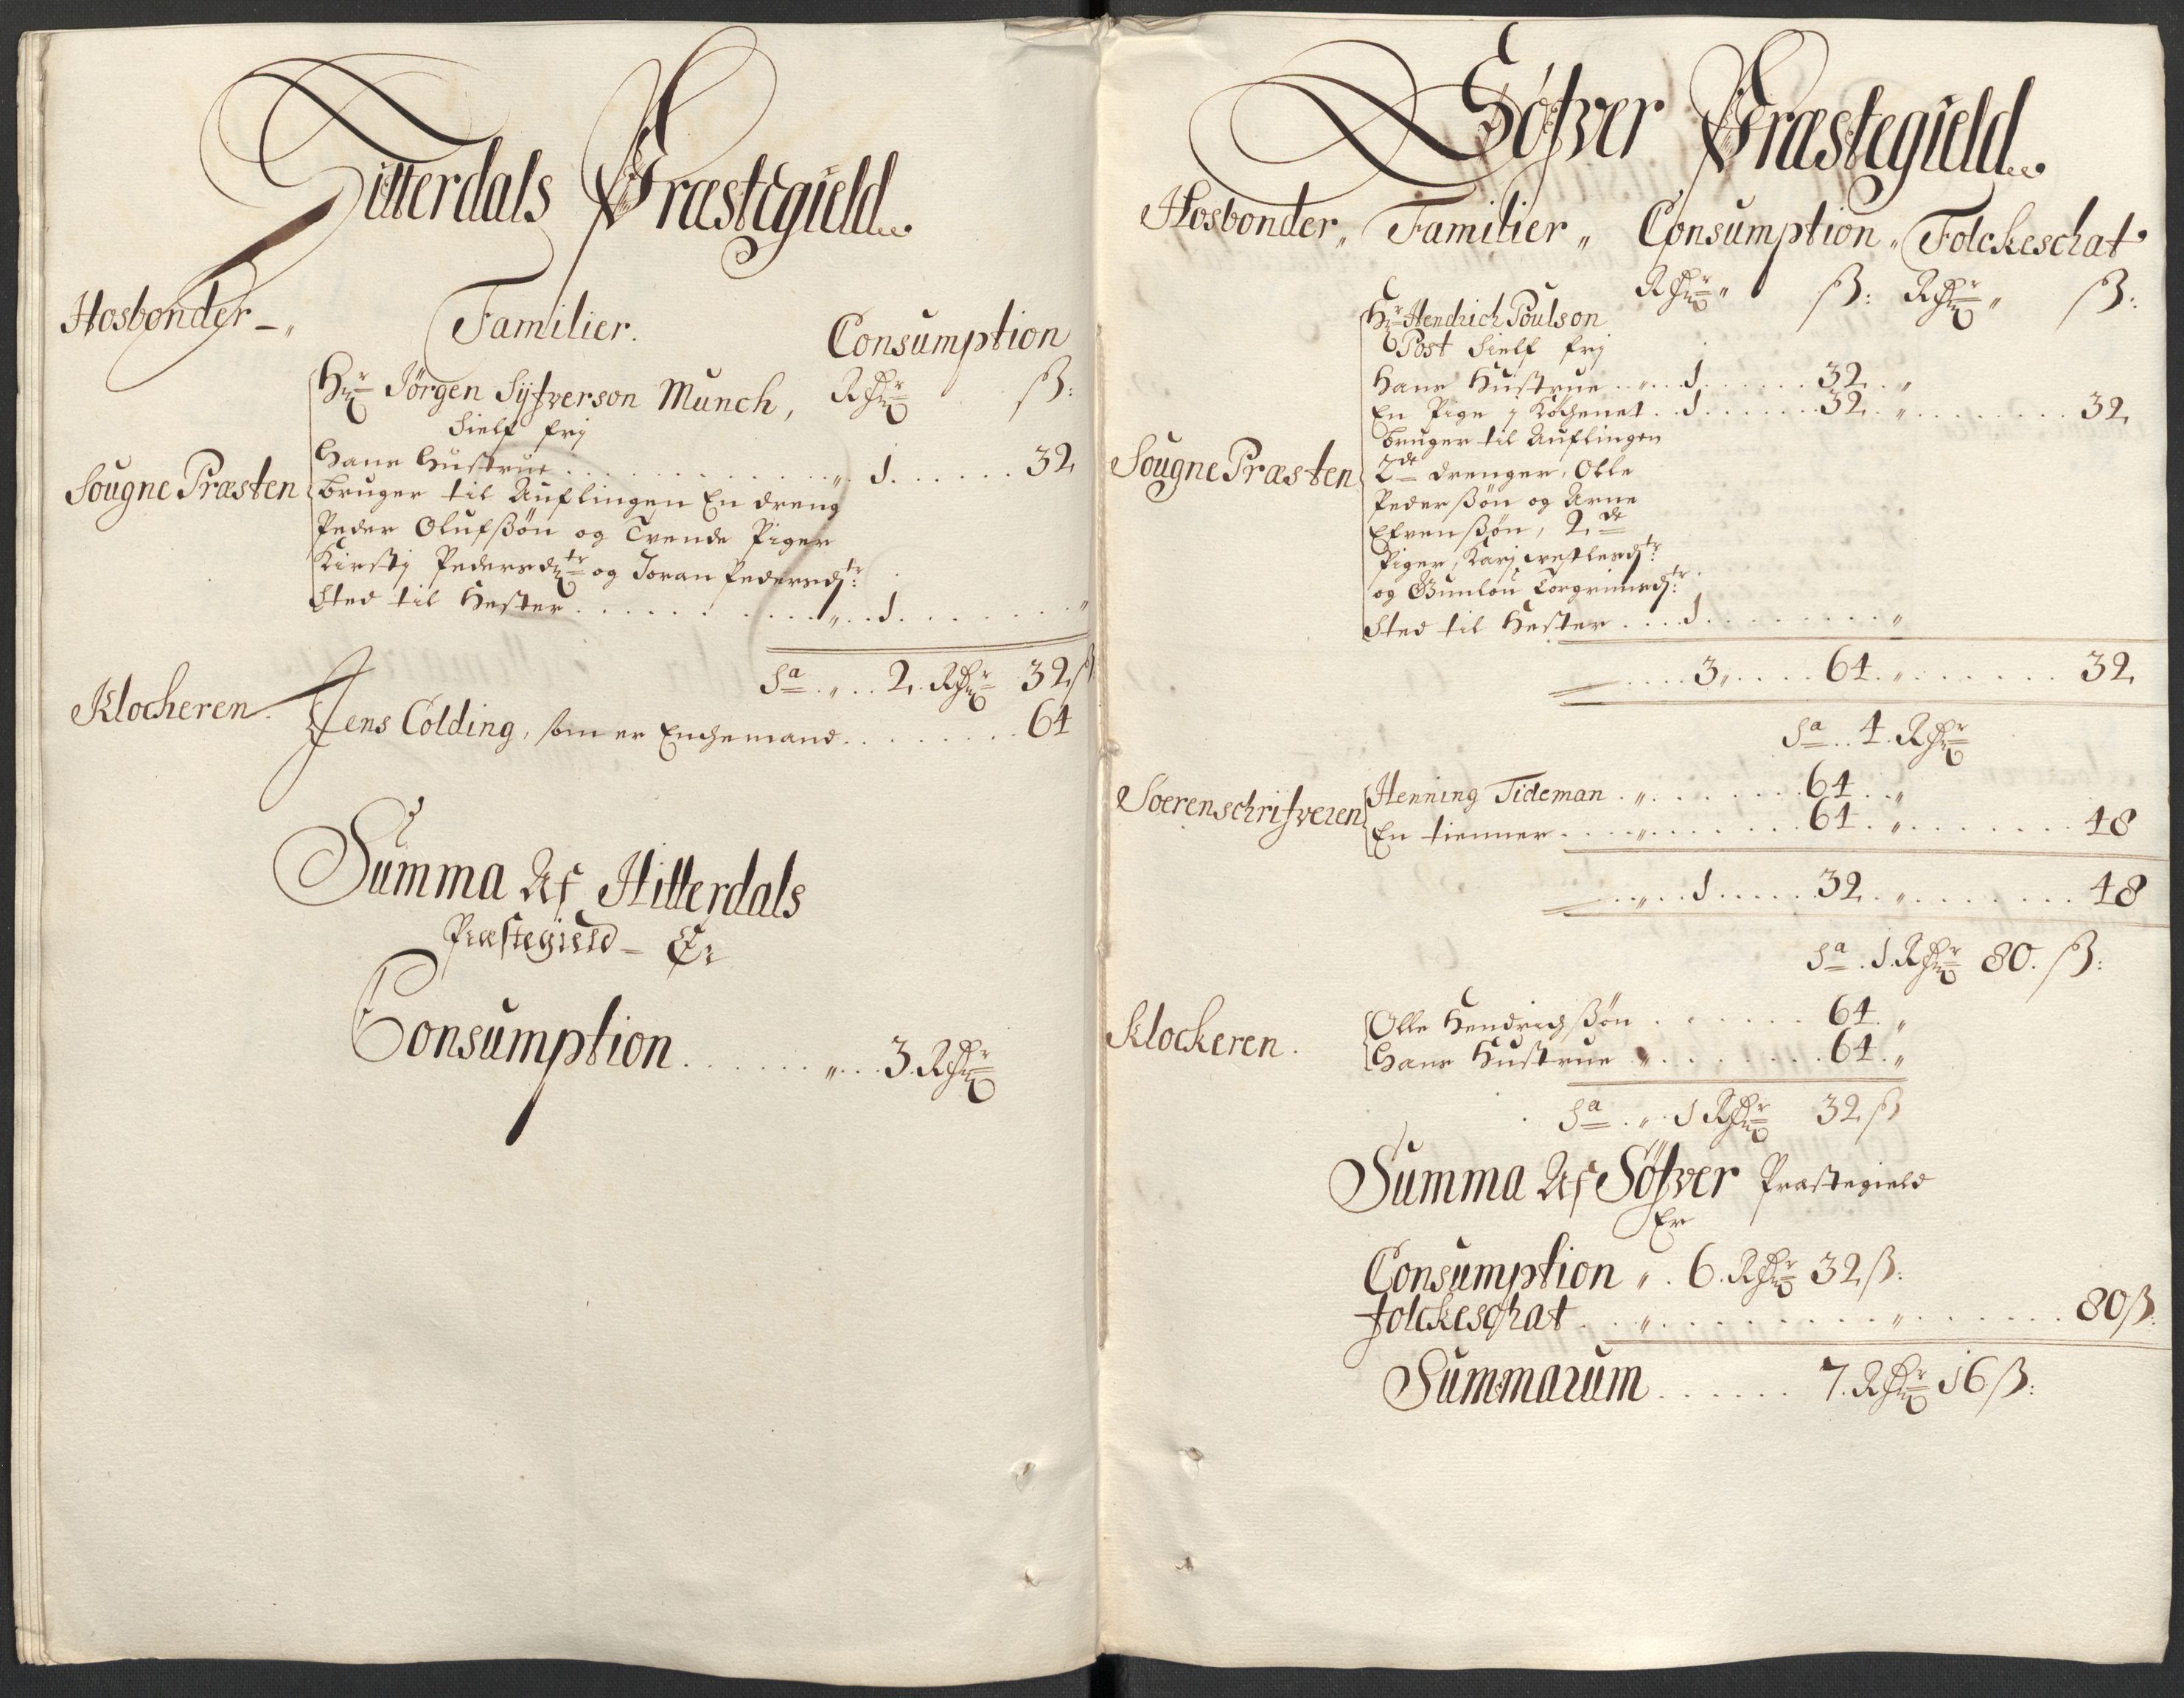 Hitterdals Præstegield
Hosbonder
Familier.
Consumption
Hr Jørgen Syfverson Munch, Rdr ß:
Sielf frj
Sougne Præsten
Hans Hustrue 1 32
bruger til Auflingen En dreng
Peder Olufßøn og Tvende Piger
Kirstj Pedersdtr og Joran Pedersdtr:
Sted til Hester 1 "
Sa 2 Rdr 32 ß
Klocheren
Jens Colding, som er Enchemand 64
Summa Af Hitterdals
Præstegield Er
Consumption 3 Rdr
Søfver Præstegield
Hosbonder Familier Consumption Folckeschat
Rdr ß: Rdr ß:
Hr Hendrich Poulson
Post Sielf frj
Hans Hustrue 1 32 "
En Pige j Køchenet 1 32 " 32
bruger til Auflingen
Sougne Præsten
2de drenger, Olle
Pederßøn og Arne
Efvenßøn, 2de
Piger, Karj
og Gunlou Torgrimsdtr:
Sted til Hester 1 "
3 64 " 32
Sa 4 Rdr
Soerenschrifveren
Henning Tideman " 64 "
En tienner " 64 " 48
" 1 32 " 48
Sa 1 Rdr 80 ß:
Klockeren.
Olle Hendrichßøn 64 "
Hans Hustrue " 64 "
Sa " 1 Rdr 32 ß
Summa Af Søfver Præstegield
Er
Consumption " 6 Rdr 32 ß:
Folckeschat " " 80 ß:
Summarum 7 Rdr 16 ß: